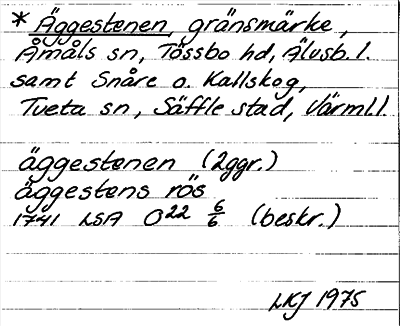 * Äggestenen, gränsmärke,
Åmåls sn, Tössbo hd, Älvsb. l.
samt Snåre o. Kallskog,
Tveta sn, Säffle stad, Värml. l.
äggestenen (2ggr.)
äggestens rös
1741 LSA O22 6/6 (beskr.)
LKJ 1975